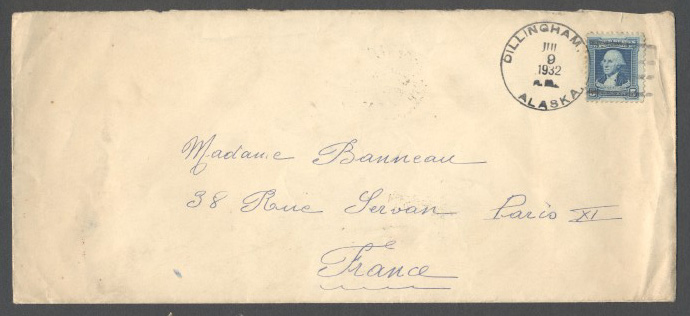 DILLINGHAM.
9
1932
A.M.
ALASKA.
5 5
Madame Banneau
38 Rue Servan Paris XI
France